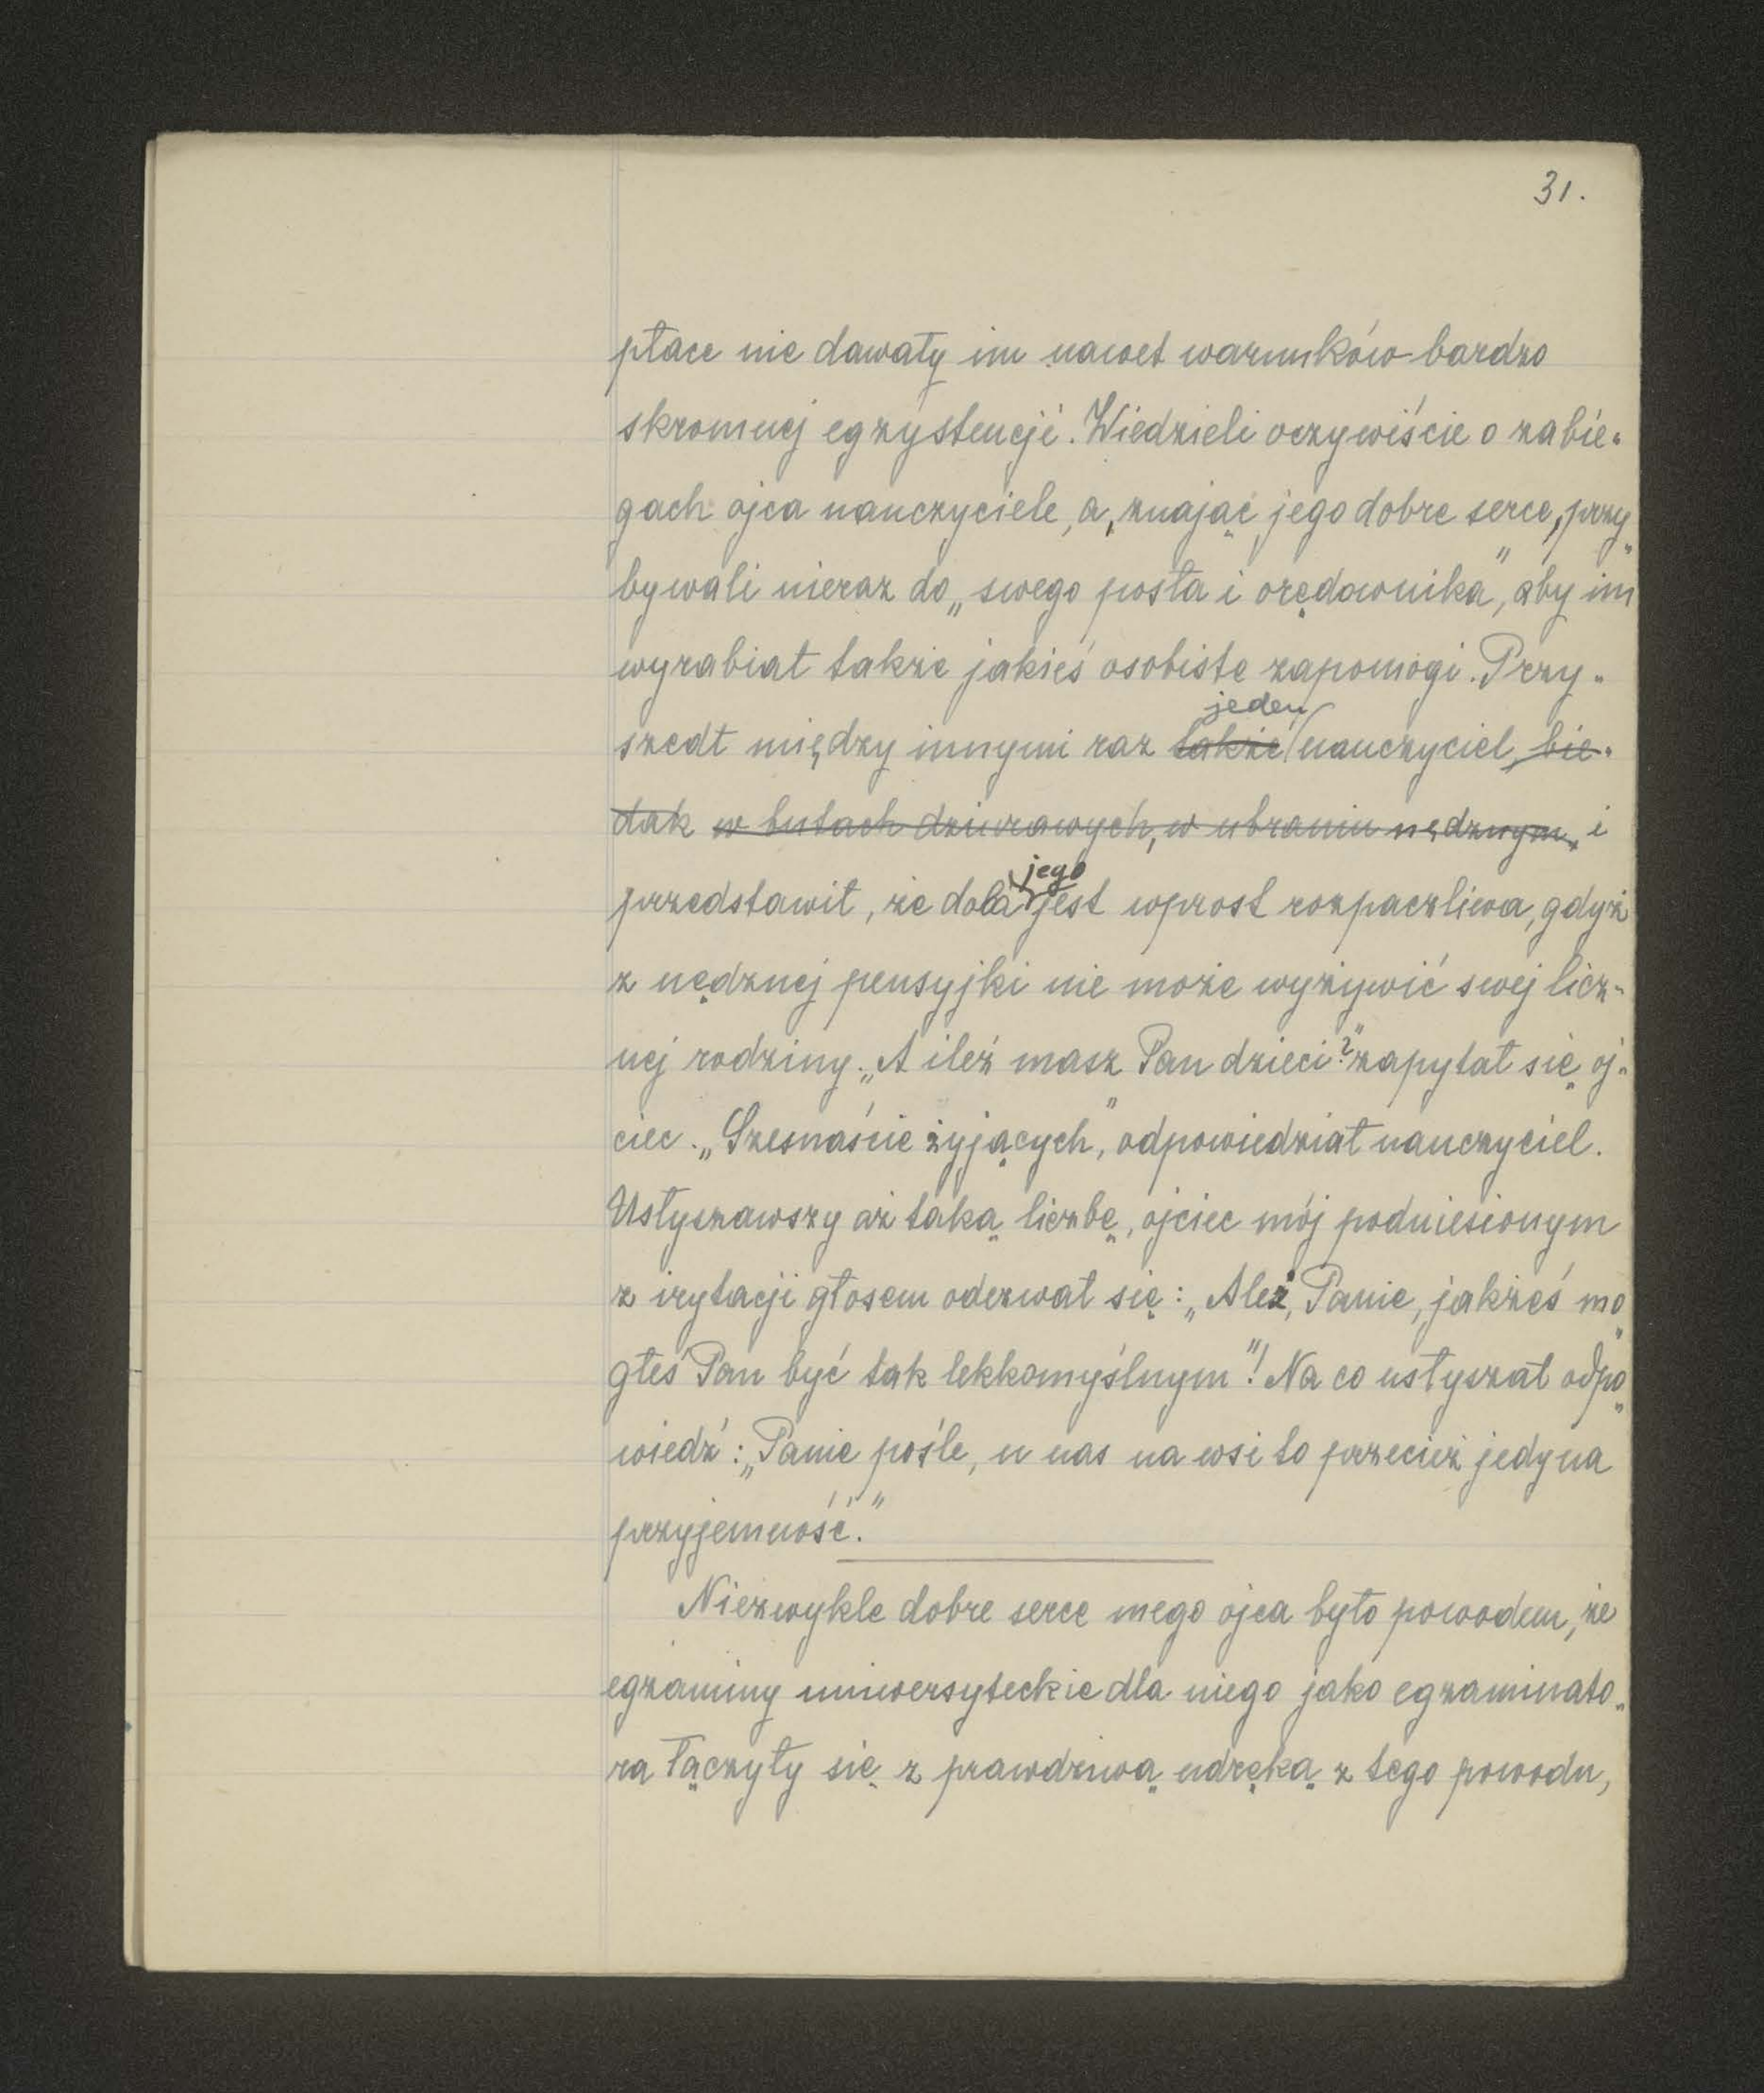 31.
płace nie dawały im nawet warunków bardzo
skromnej egzystencji. Wiedzieli oczywiście o zabie-
gach ojca nauczyciele, a, znając jego dobre serce, przy-
bywali nieraz do „swego posła i orędownika”, aby im
wyrabiał także jakieś osobiste zapomogi. Przy-
jeden
szedł między innymi raz także nauczyciel, bie-
dak w butach dziurawych, w ubraniu nędznym, i
jego
przedstawił, że dola jest wprost rozpaczliwa, gdyż
z nędznej pensyjki nie może wyżywić swej licz-
nej rodziny. „A ileż masz Pan dzieci?” zapytał się oj-
ciec. „Szesnaście żyjących”, odpowiedział nauczyciel.
Usłyszawszy aż taką liczbę, ojciec mój podniesionym
z irytacji głosem odezwał się: „Ależ, Panie, jakżeś mo-
głeś Pan być tak lekkomyślnym”! Na co usłyszał odpo-
wiedź: „Panie pośle, u nas na wsi to przecież jedyna
przyjemność.”
Niezwykle dobre serce mego ojca było powodem, że
egzaminy uniwersyteckie dla niego jako egzaminato-
ra łączyły się z prawdziwą udręką z tego powodu,